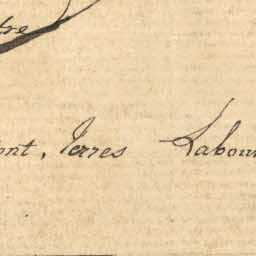 tre
ont, Terres Labour